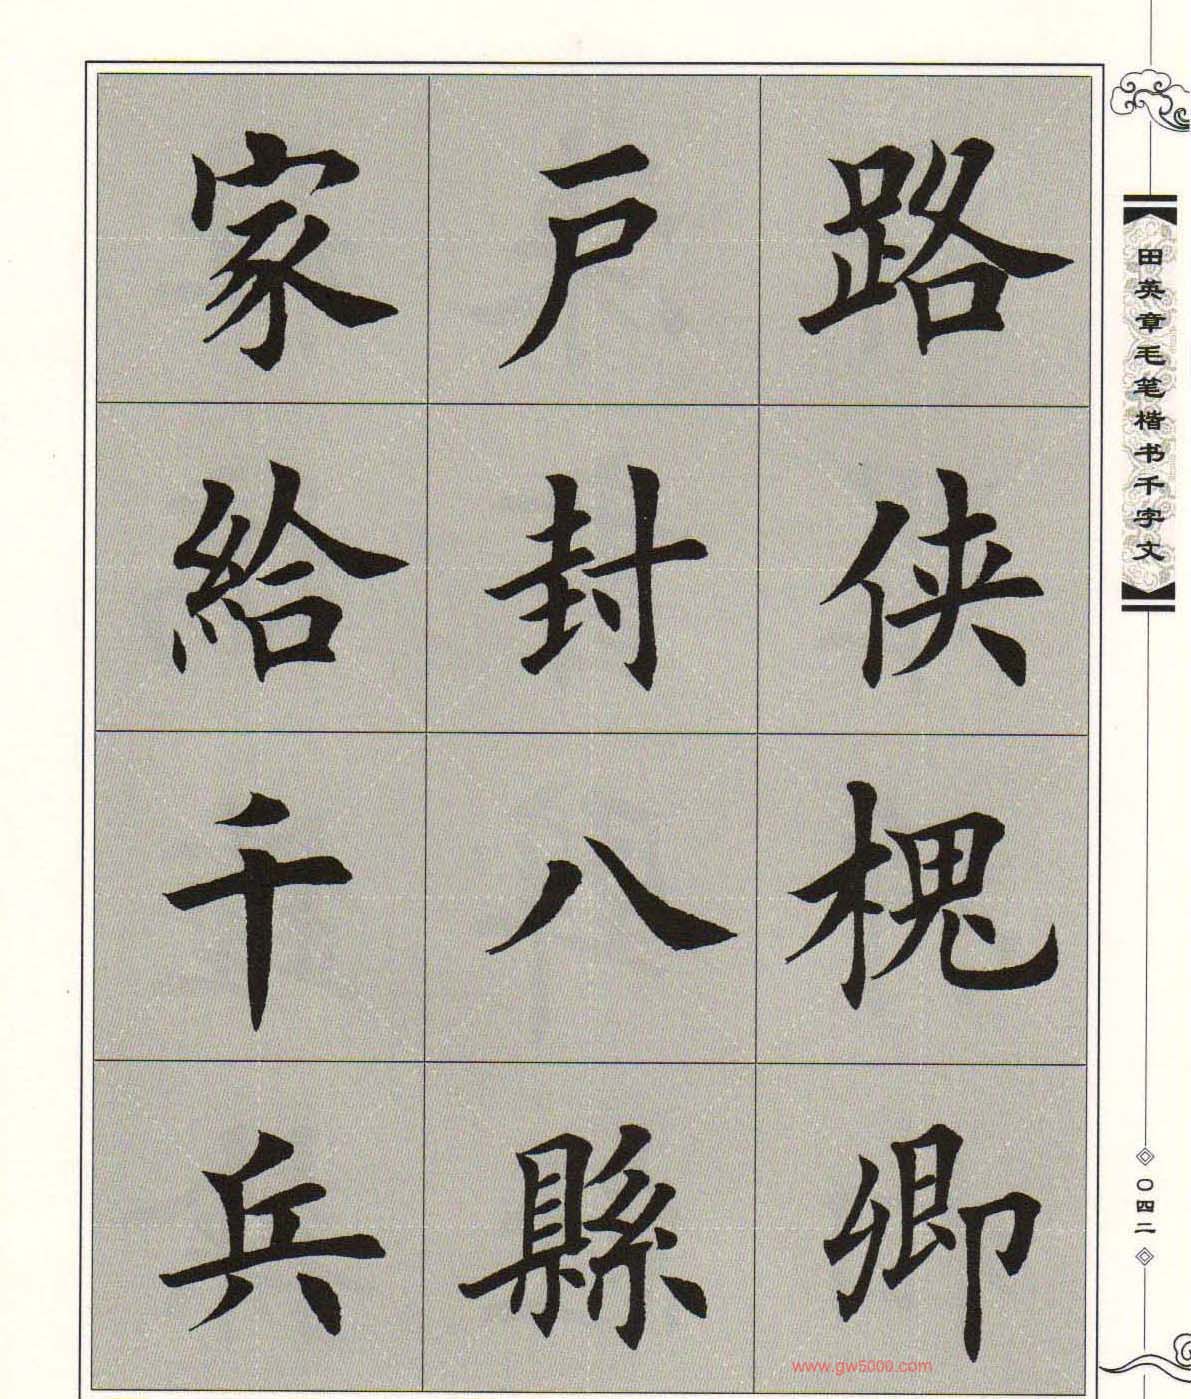 路侠槐卿
戸封八縣
家給千兵
田英章毛笔楷书千字文
〇四二
www.gw5000.com